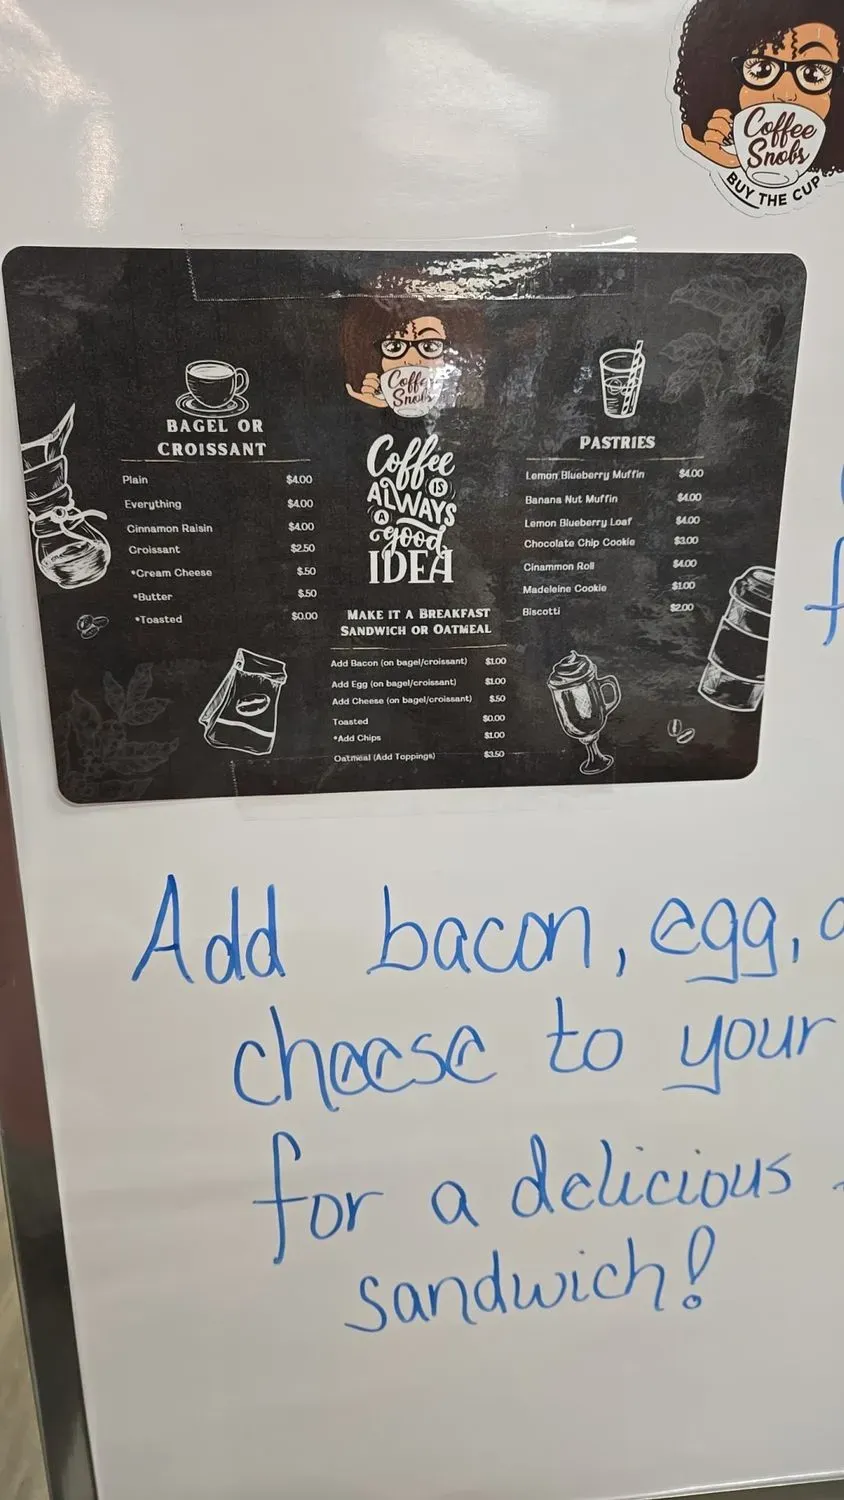 Coffee
Snobs
BUY THE CUP
Coffee
Snobs
BAGEL OR
CROISSANT
Plain $4.00
Everything $4.00
Cinnamon Raisin $4.00
Croissant $2.50
*Cream Cheese $.50
*Butter $.50
*Toasted $0.00
Coffee
IS
ALWAYS
a
good
IDEA
MAKE IT A BREAKFAST
SANDWICH OR OATMEAL
Add Bacon (on bagel/croissant) $1.00
Add Egg (on bagel/croissant) $1.00
Add Cheese (on bagel/croissant) $.50
Toasted $0.00
*Add Chips $1.00
Oatmeal (Add Toppings) $3.50
PASTRIES
Lemon Blueberry Muffin $4.00
Banana Nut Muffin $4.00
Lemon Blueberry Loaf $4.00
Chocolate Chip Cookie $3.00
Cinammon Roll $4.00
Madeleine Cookie $1.00
Biscotti $2.00
Add bacon, egg,
cheese to your
for a delicious
sandwich!